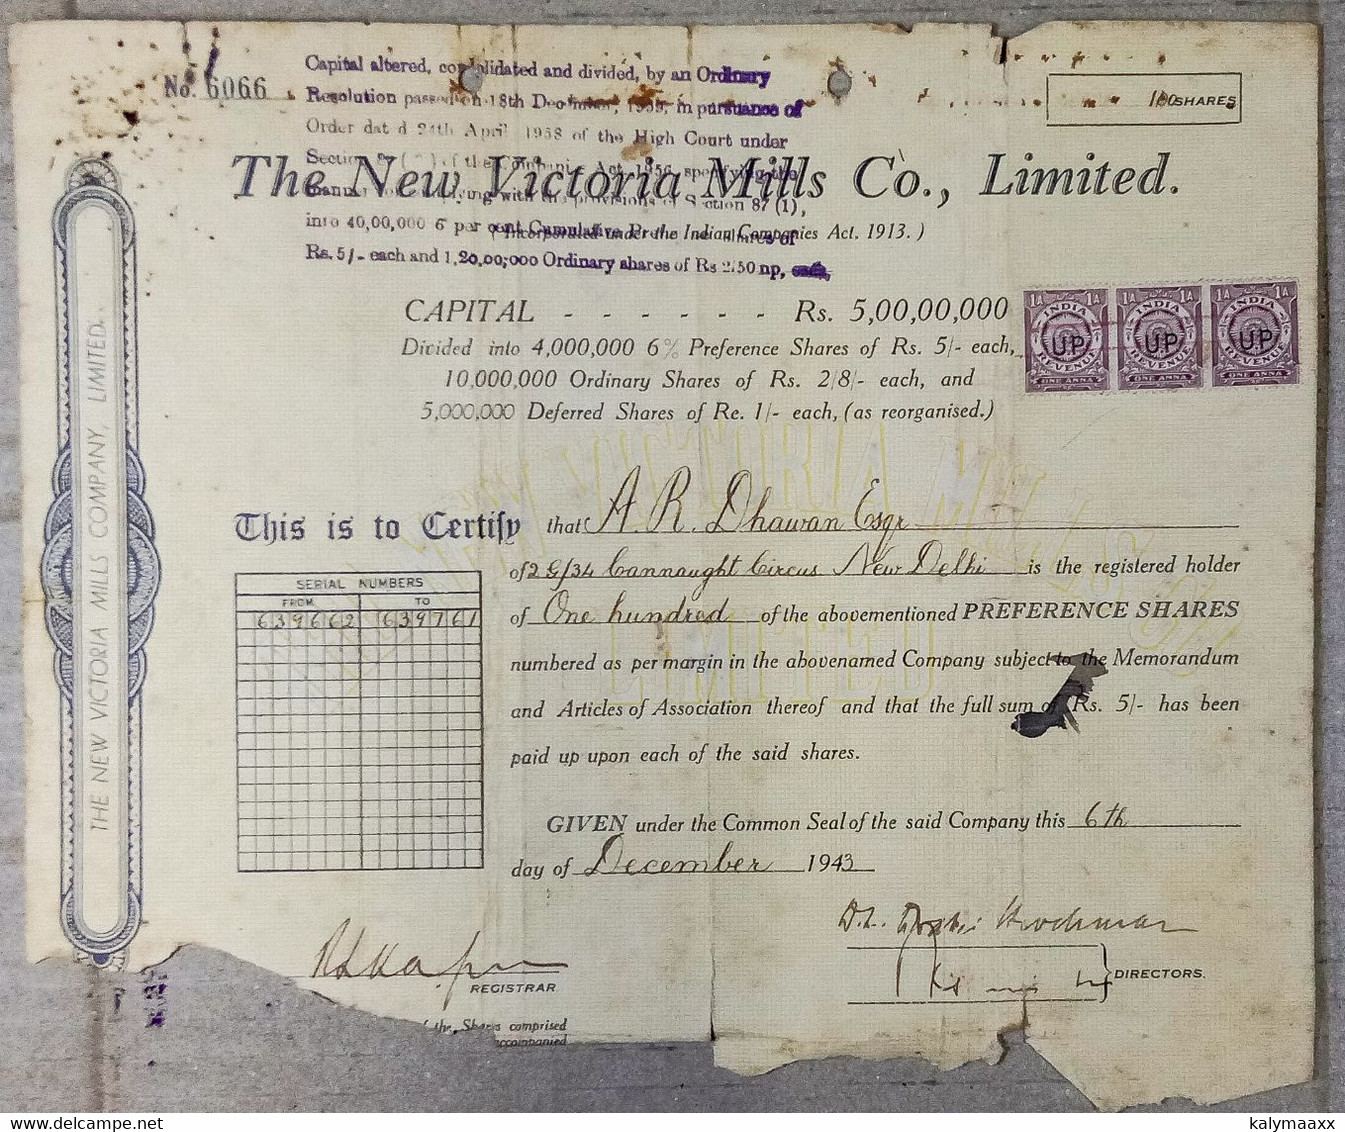 No. 6066
Capital altered, consolidated and divided, by an Ordinary
Resolution passed on 18th December, in pursuance of
Order dat d 24th April 1958 of the High Court under
of the Companies Act, 1956, specifying the
with the provisions of Section 87 (1),
into 40,00,000 6 per cent Cumulative
Rs. 5/- each and 1,20,00,000 Ordinary shares of Rs 2/50 np, each,
100 SHARES
The New Victoria Mills Co., Limited.
( Incorporated under the Indian Companies Act. 1913. )
CAPITAL - - - - - - Rs. 5,00,00,000
Divided into 4,000,000 6% Preference Shares of Rs. 5/- each,
10,000,000 Ordinary Shares of Rs. 2/8/- each, and
5,000,000 Deferred Shares of Re. 1/- each, (as reorganised.)
1A INDIA 1A U.P. REVENUE ONE ANNA
1A INDIA 1A U.P. REVENUE ONE ANNA
1A INDIA 1A U.P. REVENUE ONE ANNA
THE NEW VICTORIA MILLS COMPANY, LIMITED.
NEW VICTORIA MILLS CO
LIMITED
This is to Certify that A. R. Dhawan Esqr
of 2 G/34 Connaught Circus New Delhi is the registered holder
of One hundred of the abovementioned PREFERENCE SHARES
numbered as per margin in the abovenamed Company subject to the Memorandum
and Articles of Association thereof and that the full sum of Rs. 5/- has been
paid up upon each of the said shares.
SERIAL NUMBERS
FROM TO
639662 639761
GIVEN under the Common Seal of the said Company this 6th
day of December 1943
REGISTRAR
DIRECTORS.
the Shares comprised
accompanied
kalymaaxx